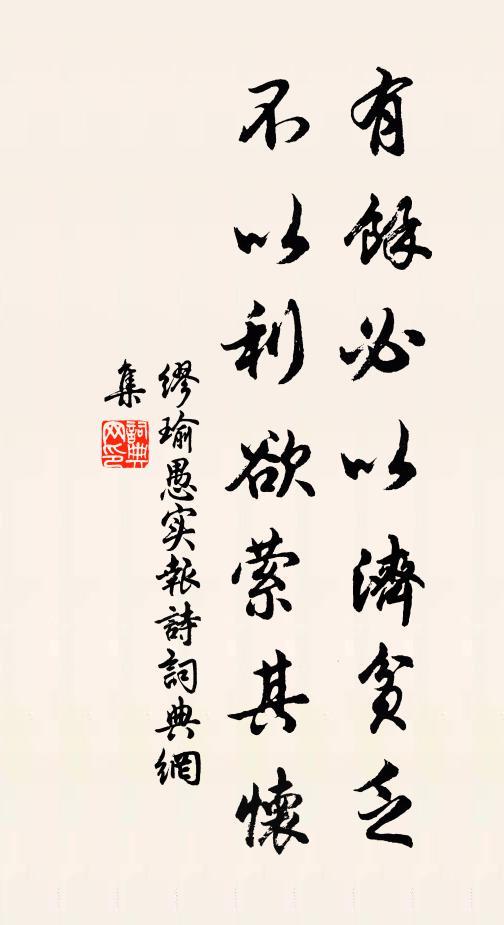 有餘必以濟貧乏
不以利欲萦其懷
繆瑜愚实報詩詞典網
集
詞典
网印